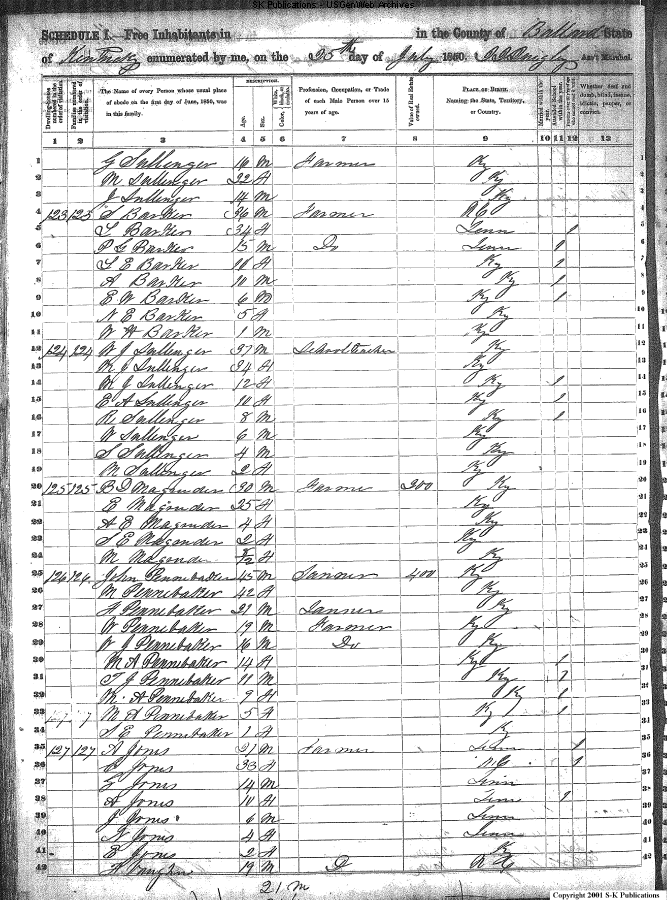 SK Publications - USGenWeb Archives
SCHEDULE I.—Free Inhabitants in in the County of Ballard State
of Kentucky enumerated by me, on the 25th day of July 1850. Ass't Marshal.
Dwelling-houses numbered in the order of visitation.
Families numbered in the order of visitation.
The Name of every Person whose usual place of abode on the first day of June, 1850, was in this family.
DESCRIPTION.
Age.
Sex.
Profession, Occupation, or Trade of each Male Person over 15 years of age.
Value of Real Estate owned.
PLACE OF BIRTH. Naming the State, Territory, or Country.
Married within the year.
Attended School within the year.
Whether deaf and dumb, blind, insane, idiotic, pauper, or convict.
1 2 3 4 5 6 7 8 9 10 11 12 13
1 G Sullenger 16 M Farmer Ky 1
2 M Sullenger 22 F Ky 2
3 J Sullenger 14 M Ky 3
4 123 123 S Barker 36 M Farmer N C 4
5 S Barker 34 F Tenn 1 5
6 P G Barker 15 M Do Tenn 1 6
7 S E Barker 11 F Ky 1 7
8 A Barker 10 M Ky 1 8
9 E W Barker 6 M Ky 1 9
10 N E Barker 5 F Ky 10
11 W H Barker 1 M Ky 11
12 124 124 W J Sullenger 37 M School teacher Ky 12
13 M J Sullenger 34 F Ky 13
14 M J Sullenger 12 F Ky 1 14
15 E A Sullenger 10 F Ky 1 15
16 R Sullenger 8 M Ky 1 16
17 W Sullenger 6 M Ky 17
18 S Sullenger 4 M Ky 18
19 M Sullenger 2 F Ky 19
20 125 125 B D Magruder 30 M Farmer 200 Ky 20
21 E Magruder 25 F Ky 21
22 A E Magruder 4 F Ky 22
23 S E Magruder 2 F Ky 23
24 M Magruder 8/12 F Ky 24
25 126 126 John Pennebaker 45 M Tanner 400 Ky 25
26 M Pennebaker 42 F Ky 26
27 H Pennebaker 21 M Tanner Ky 27
28 W Pennebaker 19 M Farmer Ky 28
29 W J Pennebaker 16 M Do Ky 29
30 M A Pennebaker 14 F Ky 1 30
31 T J Pennebaker 11 M Ky 1 31
32 A Pennebaker 9 F Ky 1
33 M A Pennebaker 5 F Ky 1 33
S E Pennebaker 1 F Ky
35 127 127 A Jones 31 M Farmer Tenn 1 35
Jones 33 F N C 1
G Jones 14 M Tenn
38 A Jones 10 F Tenn 1 38
J Jones 6 M Tenn
Jones 4 F Tenn
41 E Jones 2 F Ky 41
42 Vaughn 19 M D 42
21 M
Copyright 2001 S-K Publications